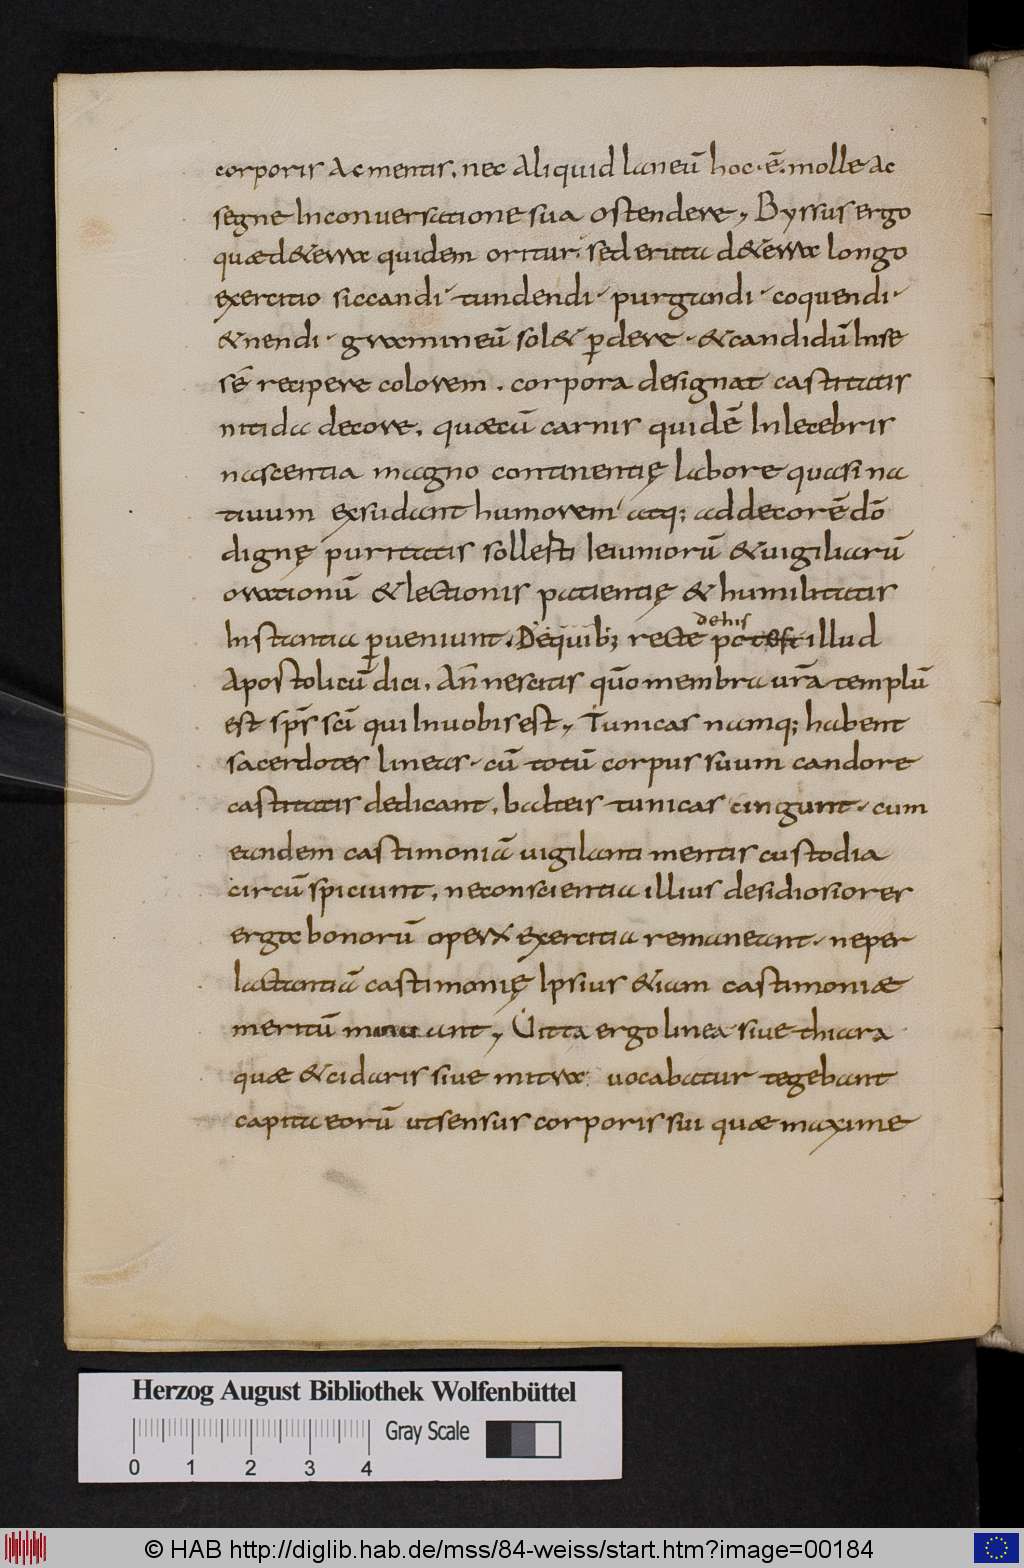 corporis ac mentis. nec aliquid laneū hoc·ē. molle ac
segne Inconuersatione sua ostendere, Byssus ergo
quaed&erra quidem oritur· sed erutu d&erra longo
exercitio siccandi· tundendi· purgandi· coquendi·
&nendi· gramineū sol& ꝑdere· &candidū Inse
sē recipere colorem. corpora designat castitatis
nitida decore. quaecū carnis quidē Inlecebris
nascentia magno continentię labore quasi na
tiuum exsudant humorem atq; ad decorē dō
dignę puritatis sollesti Ieiuniorū &uigiliarū
orationū &lectionis patientię & humilitatis
Instantia ꝑueniunt. Dequib; recte potest illud
dehis
Apostolicū dici. An̄ nescitis quō membra ur̄a templū
est sp̄s sc̄i qui Inuobis est, Tunicas namq; habent
sacerdotes lineas· cū totū corpus suum candore
castitatis dedicant. balteis tunicas cingunt· cum
eandem castimoniā uigilanti mentis custodia
circū spiciunt. neconscientia illius desidiosiores
erga bonorū operū exercitia remaneant· neper
lactantiā castimonię Ipsius &iam castimoniae
meritū minuant, Uitta ergo linea siue thiara
quae &cidaris siue mitra uocabatur tegebant
capita eorū ut sensus corporis sui quae maxime
Herzog August Bibliothek Wolfenbüttel
Gray Scale
0 1 2 3 4
© HAB http://diglib.hab.de/mss/84-weiss/start.htm?image=00184